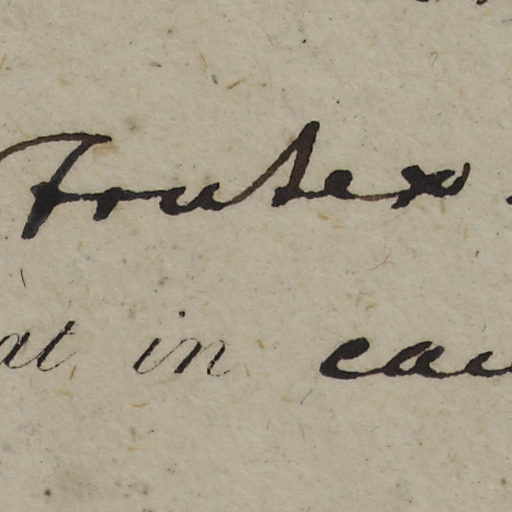 Frutex.
at in cau